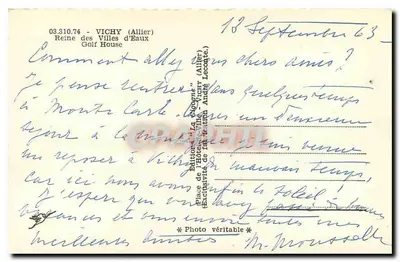 03.310.74 - VICHY (Allier)
Reine des Villes d'Eaux
Golf House
13 Septembre 63
Comment allez vous chers amis?
Je pense rentrer dans quelques temps
à Monte Carlo. Après un
séjour à la suis venue
me reposer à Vichy mauvais temps,
car ici nous avons enfin le soleil!
J'espère que vous avez
vacances et vous envoie toutes mes
meilleures amitiés
Editions "La Cigogne"
Place de l'Hôtel de Ville - VICHY (Allier)
(Exclusivité de la Maison André Leconte.)
* Photo véritable *